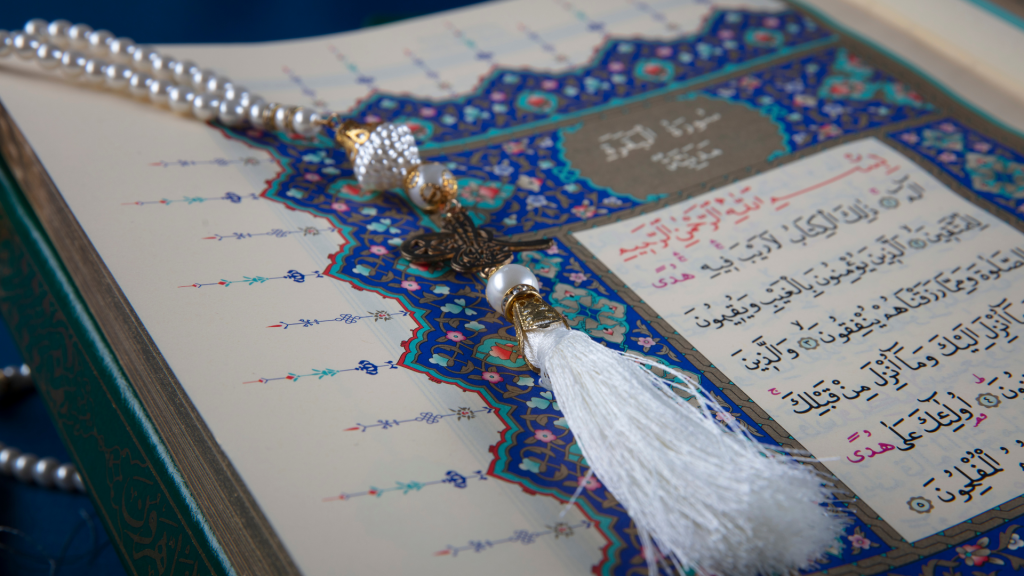 سورة البقرة
مدنية
بسم الله الرحمن الرحيم
الم ۝ ذلك الكتاب لا ريب فيه هدى
للمتقين ۝ الذين يؤمنون بالغيب ويقيمون
الصلاة ومما رزقناهم ينفقون ۝ والذين
أنزل إليك وما أنزل من قبلك
أولئك على هدى
المفلحون ۝